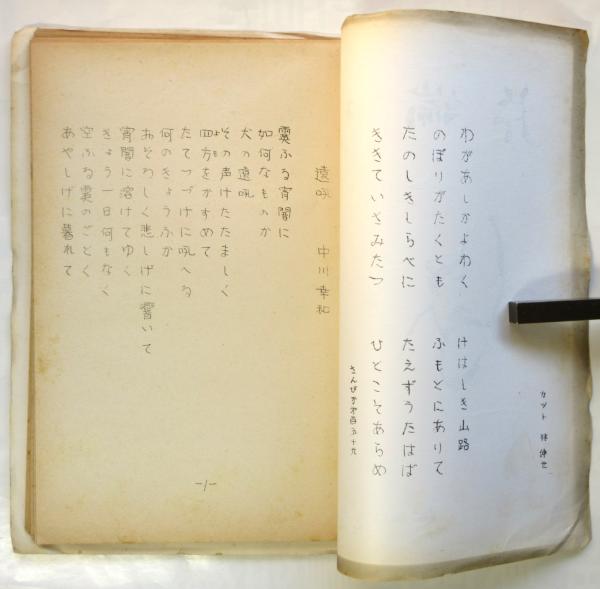 カット 林
わがあしかよわく けはしき山路
のぼりがたくとも ふもとにありて
たのしきしらべに たえずうたはば
ききていさみたつ ひとこそあらめ
さんびか第百五十九
遠吠 中川幸和
霙ふる宵闇に
如何なものか
犬の遠吠
その声けたたましく
四方をかすめて
たてつづけに吠へる
何のきょうふか
おそわしく悲しげに響いて
宵闇に溶けてゆく
きょう一日何もなく
空ふる霙のごとく
あやしげに暮れて
-1-